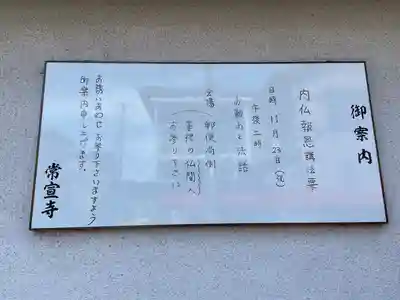 御案内
内仏報恩講法要
日時 11月23日(祝)
午後二時
お勤めと法話
会場 郵便局側
庫裡の仏間へ
お参り下さい
お誘いあわせお参り下さいますよう
御案内申し上げます。
常宣寺